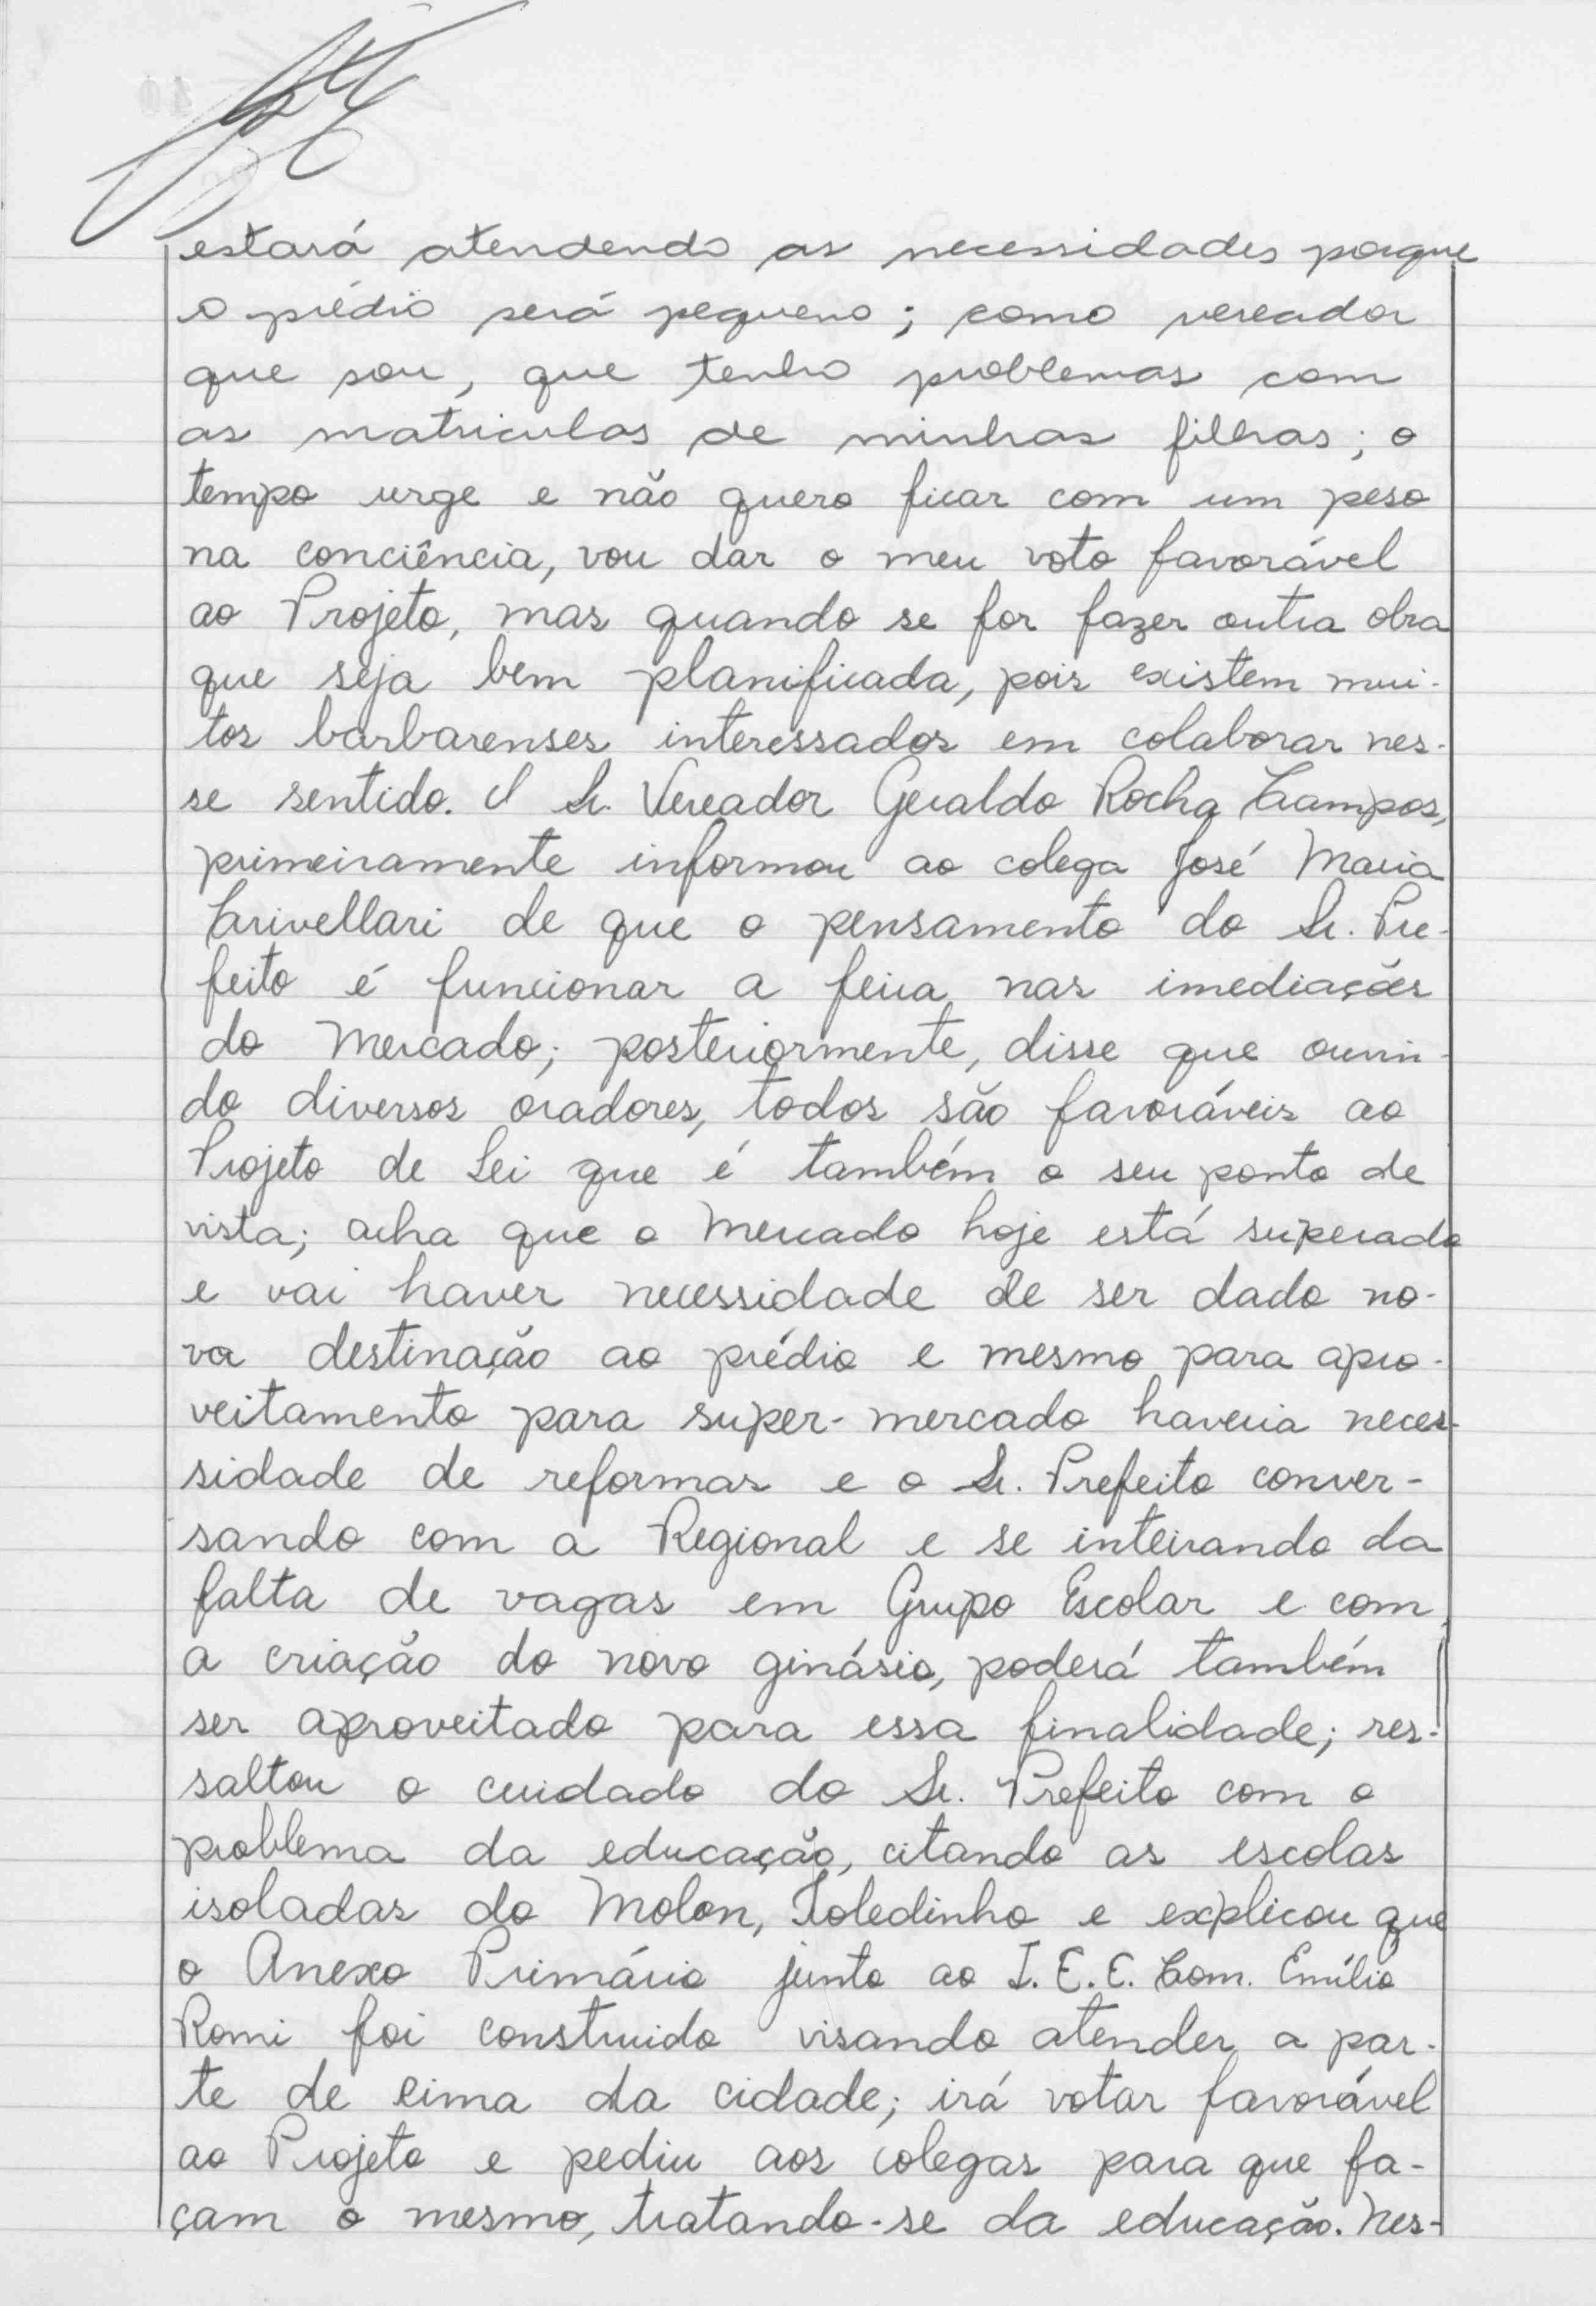 estará atendendo as necessidades porque
o prédio será pequeno; como vereador
que sou, que tenho problemas com
as matriculas de minhas filhas; o
tempo urge e não quero ficar com um peso
na conciência, vou dar o meu voto favorável
ao Projeto, mas quando se for fazer outra obra
que seja bem planificada, pois existem mui-
tos barbarenses interessados em colaborar nes-
se sentido. O Sr. Vereador Geraldo Rocha Campos,
primeiramente informou ao colega José Maria
Crivellari de que o pensamento do Sr. Pre-
feito é funcionar a feira nas imediações
do Mercado; posteriormente, disse que ouvin-
do diversos oradores, todos são favoráveis ao
Projeto de Lei que é também o seu ponto de
vista; acha que o Mercado hoje está superado
e vai haver necessidade de ser dado no-
va destinação ao prédio e mesmo para apro-
veitamento para super-mercado haveria neces-
sidade de reformas e o Sr. Prefeito conver-
sando com a Regional e se inteirando da
falta de vagas em Grupo Escolar e com
a criação do novo ginásio, poderá também
ser aproveitado para essa finalidade; res-
saltou o cuidado do Sr. Prefeito com o
problema da educação, citando as escolas
isoladas do Molon, Toledinho e explicou que
o Anexo Primário junto ao I.E.E. Com. Emílio
Romi foi construido visando atender a par-
te de cima da cidade; irá votar favorável
ao Projeto e pediu aos colegas para que fa-
çam o mesmo, tratando-se da educação. Nes-